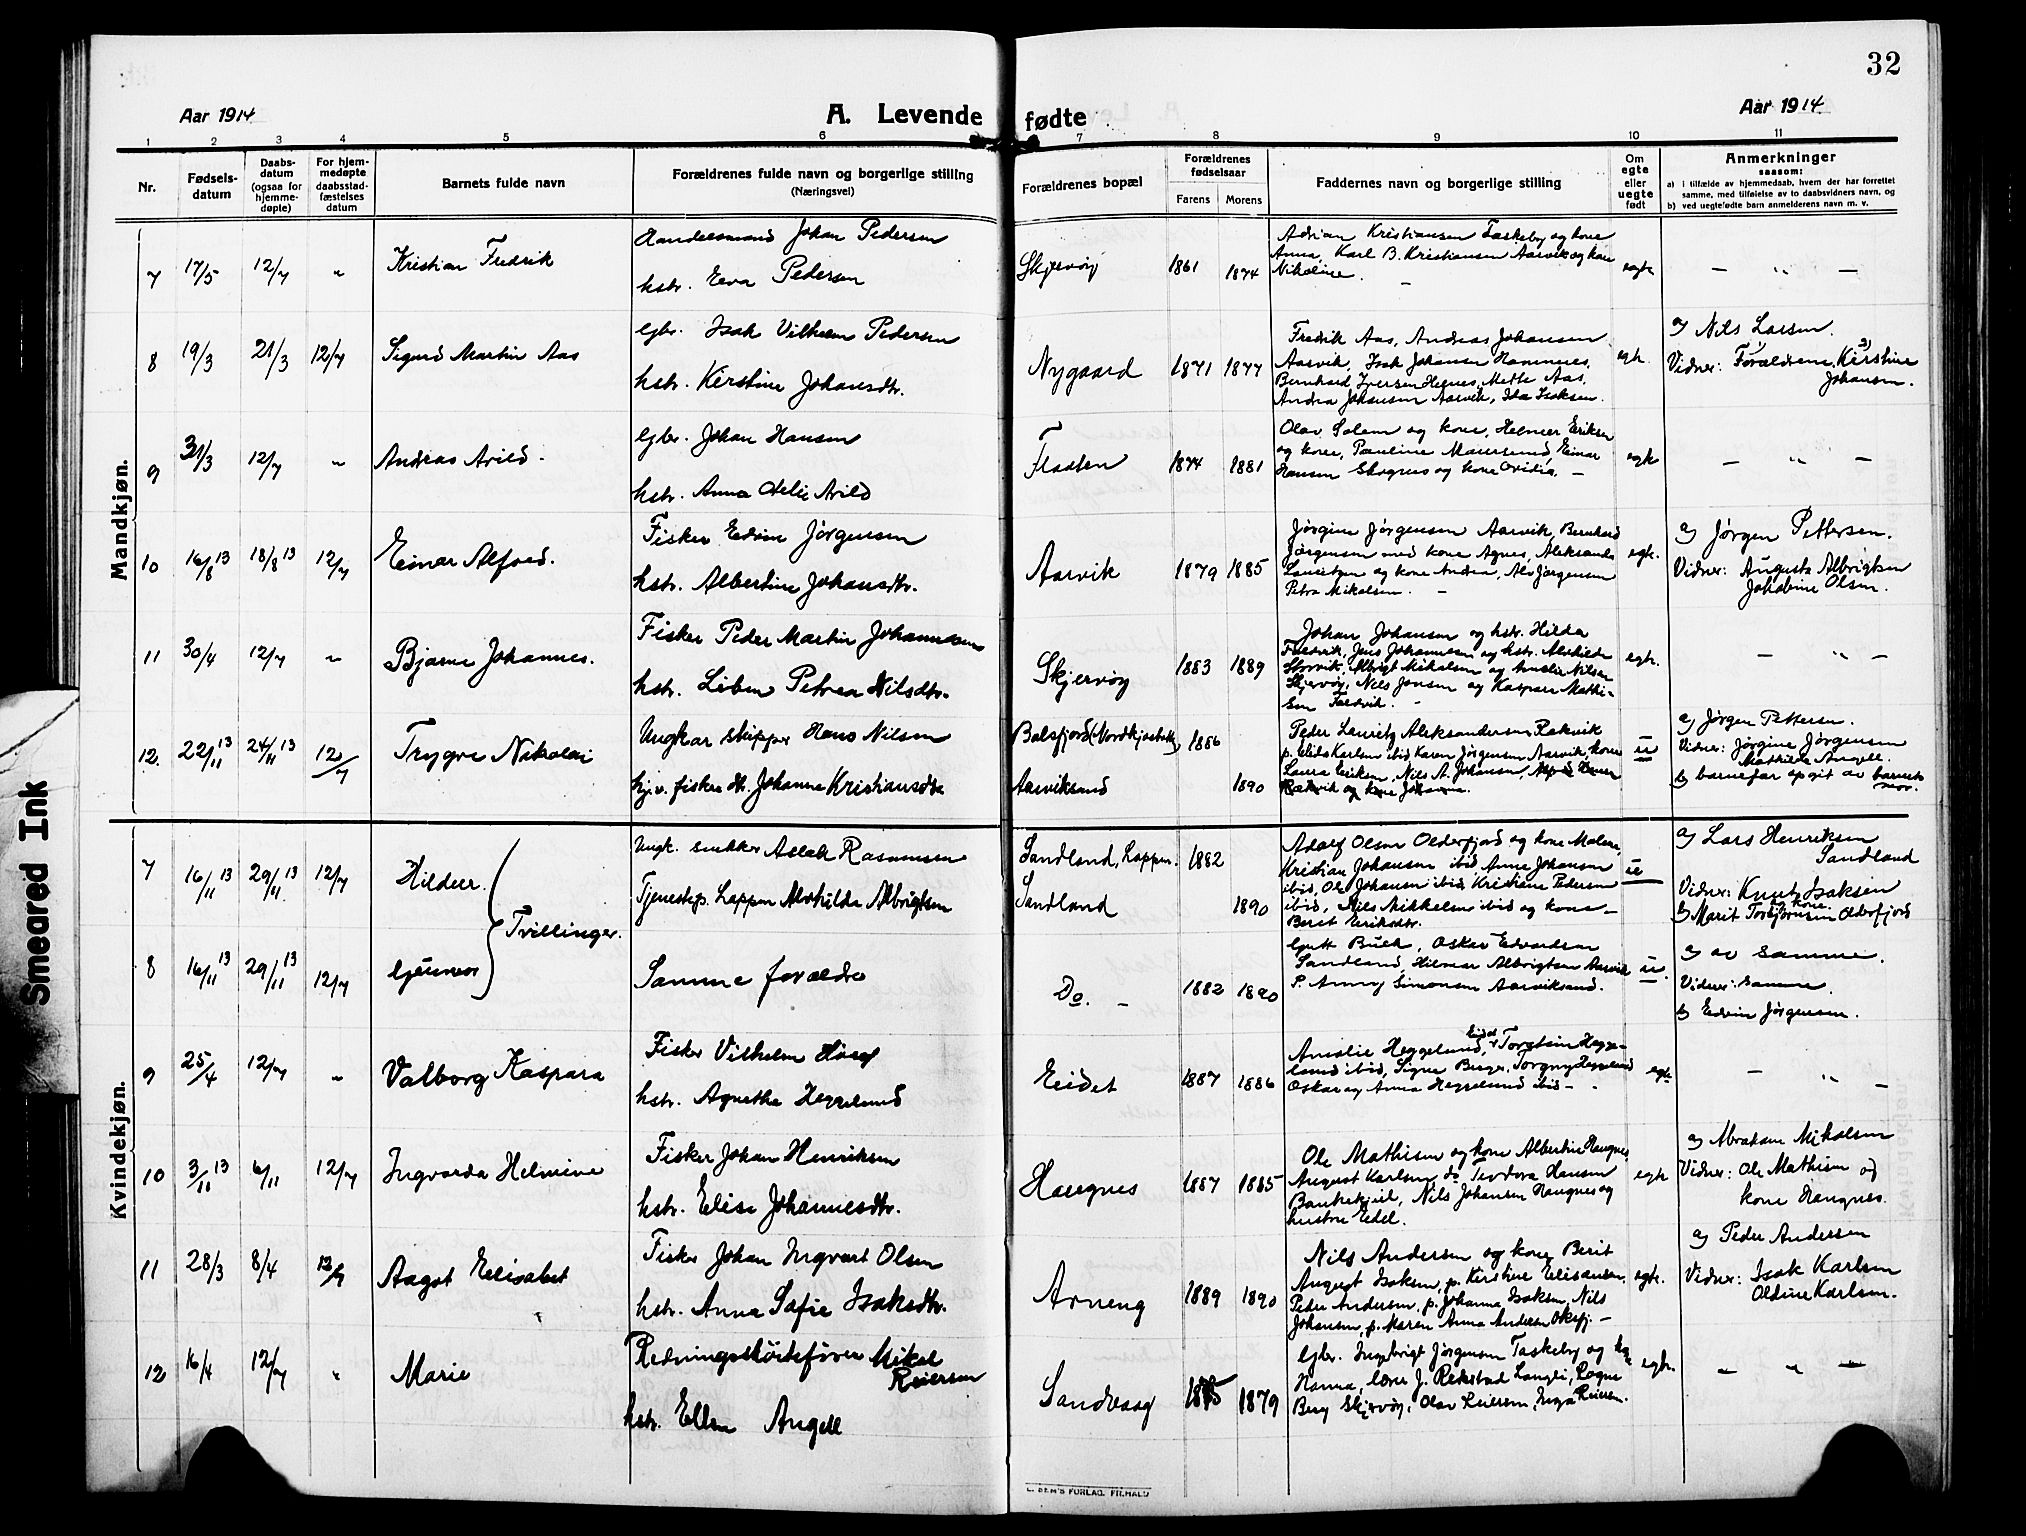 32
Aar 1914
A. Levende fødte
Aar 1914
1 2 3 4 5 6 7 8 9 10 11
Nr.
Fødsels-
datum
Daabs-
datum
(ogsaa for
hjemme-
døpte)
For hjem-
medøpte
daabsstad-
fæstelses
datum
Barnets fulde navn
Forældrenes fulde navn og borgerlige stilling
(Næringsvei)
Forældrenes bopæl
Forældrenes
fødselsaar
Farens Morens
Faddernes navn og borgerlige stilling
Om
egte
eller
uegte
født
Anmerkninger
saasom:
a) i tilfælde av hjemmedaab, hvem der har forrettet
samme, med tilføielse av to daabsvidners navn, og
b) ved uegtefødte barn anmelderens navn m. v.
Mandkjøn.
7 17/5 12/7 „ Kristian Fredrik
Handelsmand Johan Pedersen
hstr. Eva Pedersen
Skjervøy 1861 1874
Adrian Kristiansen Taskeby og kone
Anna, Karl B. Kristiansen Aarvik og kone
Nikoline. –
egte – „ –
8 19/3 21/3 12/7 Sigurd Martin Aas
gbr. Isak Vilhelm Pedersen
hstr. Kirstine Johansdtr.
Nygaard 1871 1877
Fredrik Aas, Andreas Johansen
Aarvik, Isak Johansen Hamnnes,
Bernhard Iversen Hegnes, Mette Aas,
Andrea Johansen Aarvik, Ida Isaksen.
egte.
a) Nils Larsen.
Vidner: Forældrene, Kirstine
Johansen.
9 31/3 12/7 „ Andreas Arild.
gbr. Johan Hansen
hstr. Anna Odelie Arild
Flaaten 1874 1881
Olav Solem og kone, Helmer Eriksen
og kone, Pauline Maursund, Einar
Hansen Skognes og kone Ovidia. –
egte – „ –
10 16/8 13 18/8 13 12/7 Einar Alfred.
Fisker Edvin Jørgensen
hstr. Albertine Johansdtr.
Aarvik 1879 1885
Jørgine Jørgensen Aarvik, Bernhard
Jørgensen med kone Agnes, Aleksander
Lauritzen og kone Andrea, Alv Jørgensen
Petra Mikalsen. –
egte.
a) Jørgen Pettersen.
Vidner: Augusta Albrigtsen
Jakobine Olsen.
11 30/4 12/7 „ Bjarne Johannes.
Fisker Peder Martin Johannesen
hstr. Liben Petrea Nilsdtr.
Skjervøy 1883 1889
Johan Johansen og hstr. Hilda
Fredvik, Jens Johannesen og hstr. Alvhilde
Storvik, Albrigt Mikalsen og Amalie Nilsen
Skjervøy, Nils Jensen og Kaspara Mathi-
sen Tredvik. –
egte. – „ –
12. 22/11 13 24/11 13 12/7 Trygve Nikolai
Ungkar skipper Hans Nilsen
hjv. fisker dtr. Johanna Kristiansdtr
Balsfjord (Nordkjosbotn) 1886
Aarviksand 1890
Peder Lauritz Aleksandersen Rakvik
p. Elida Karlsen ibid Karen Jørgensen Aarvik, kone
Laura Eriksen, Nils A. Johansen,
Rakvik og kone Johanna.
u
a) Jørgen Pettersen.
Vidner: Jørgine Jørgensen
Mathilde Angell.
b) barnefar opgit av barnets
mor.
Kvindekjøn.
7 16/11 13 29/11 13 12/7 Hildur. Tvillinger.
Ungk. snekker Aslak Rasmussen
Tjenestep. Lappen Alvhilda Albrigtsen
Sandland, Lappen. 1882
Sandland 1890
Adolf Olsen Olderfjord og kone Malene,
Kristian Johansen ibid Anna Johansen
ibid, Ole Johansen ibid, Kristine Pedersen
ibid, Nils Mikkelsen ibid og kone –
Berit Eriksdtr.
u
a) Lars Henriksen
Sandland
Vidner: Knut Isaksen
og kone.
b) Marit Torbjørnsen Olderfjord
8 16/11 13 29/11 13 12/7 Gunvor
Samme forældre
Do. – 1882 1890
Gust Buch, Oskar Edvardsen
Sandland, Hilmar Albrigtsen Aarvik
P. Anny Simonsen Aarviksand.
u.
a) av samme.
Vidner: samme.
b) Edvin Jørgensen.
9 25/4 12/7 „ Valborg Kaspara
Fisker Vilhelm Høieg
hstr. Agnethe Heggelund
Eidet 1887 1886
Amalie Heggelund, Eidet, Torstein Hegge-
lund ibid, Signe Berger, Torgny Heggelund
Oskar og Anna Heggelund ibid –
egte – „ –
10 3/11 13 6/11 12/7 Ingvarda Helmine
Fisker Johan Henriksen
hstr. Elise Johannesdtr.
Haugnes 1887 1885
Ole Mathisen og kone Albertine Haugnes
August Karlsen do Teodora Hansen
Bankekjeil, Nils Johansen Haugnes og
hustru Edel.
egte
a) Abraham Mikalsen
Vidner: Ole Mathisen og
kone Haugnes.
11 28/3 8/4 12/7 Aagot Elisabet
Fisker Johan Ingvart Olsen
hstr. Anna Sofie Isaksdtr.
Arneng 1889 1890
Nils Andersen og kone Berit
August Isaksen, p. Kirstine Eliassen,
Peder Andersen, p. Johanna Isaksen, Nils
Johansen, p. Maren Anna Andersen Oksfj. –
egte.
a) Peder Andersen
Vidner: Isak Karlsen
Oldine Karlsen.
12 16/4 12/7 „ Marie
Redningsskøitefører Mikal
Reiersen
hstr. Ellen Angell
Sandvaag 1875 1879
Gbr. Ingebrigt Jørgensen Taskeby og kone
Hanna, lærer J. Rekstad Langli, Ragna
Berg Skjervøy, Olav Reiersen, Inga Reiersen.
egte. – „ –
Smeared Ink
E. SEM'S FORLAG, FR.HALD